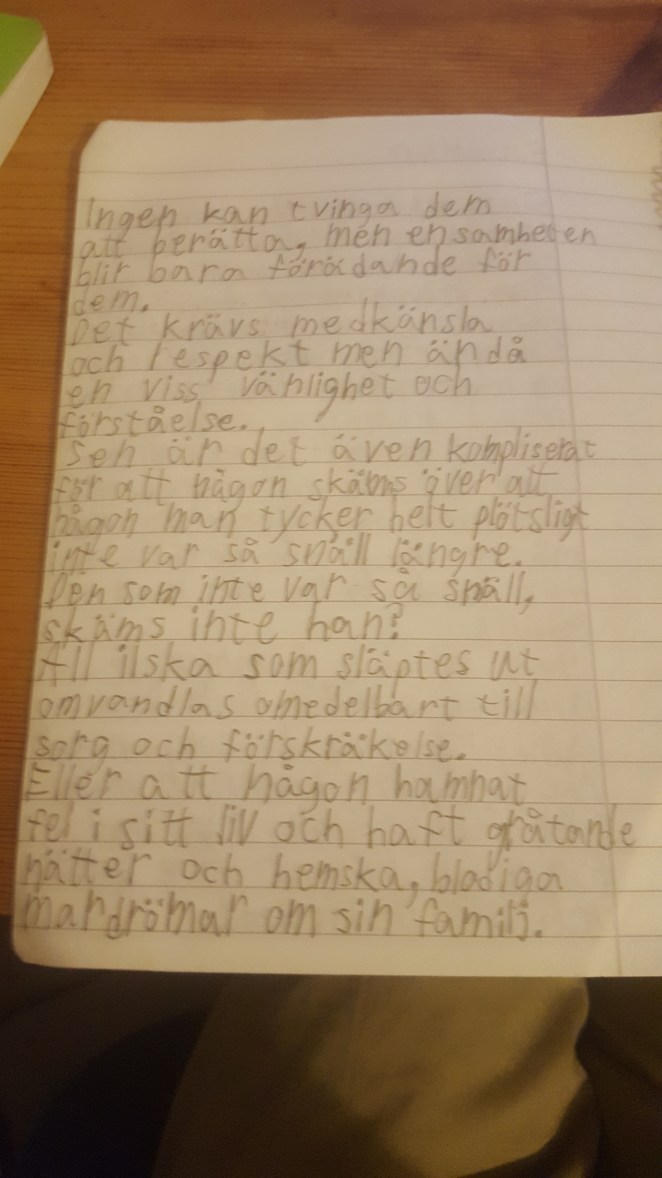 Ingen kan tvinga dem
att berätta, men ensamheten
blir bara förödande för
dem.
Det krävs medkänsla
och respekt men ändå
en viss vänlighet och
förståelse.
Sen är det även kompliserat
för att någon skäms över att
någon man tycker helt plötsligt
inte var så snäll längre.
Den som inte var så snäll,
skäms inte han?
All ilska som släptes ut
omvandlas omedelbart till
sorg och förskräkelse.
Eller att någon hamnat
fel i sitt liv och haft gråtande
nätter och hemska, blodiga
mardrömar om sin familj.